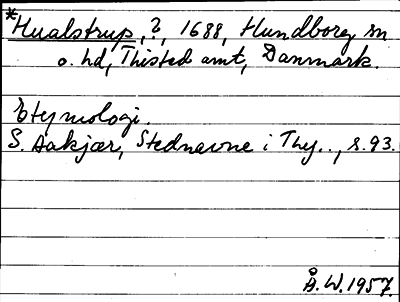 *Hualstrup, ?, 1688, Hundborg sn
o. hd, Thisted amt, Danmark.
Etymologi.
S. Aakjær, Stednavne i Thy.., s. 93.
Å.W.1957.